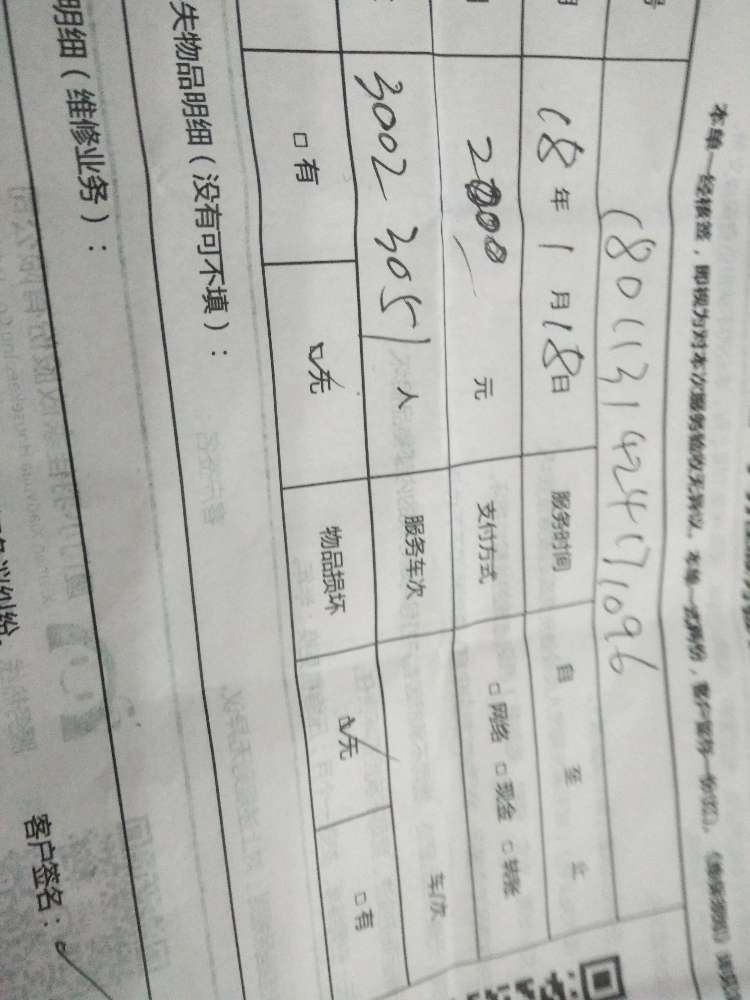 本单一经核签，即视为对本次服务验收无异议。本单一式两份，客户留存一份
号 1801131424171096
18年1月18日 服务时间 自 至 止
2000元 支付方式 □网络 □现金 □转账
3002 3051 人 服务车次 车/次
□有 ☑无 物品损坏 ☑无 □有
失物品明细（没有可不填）：
明细（维修业务）：
客户签名：